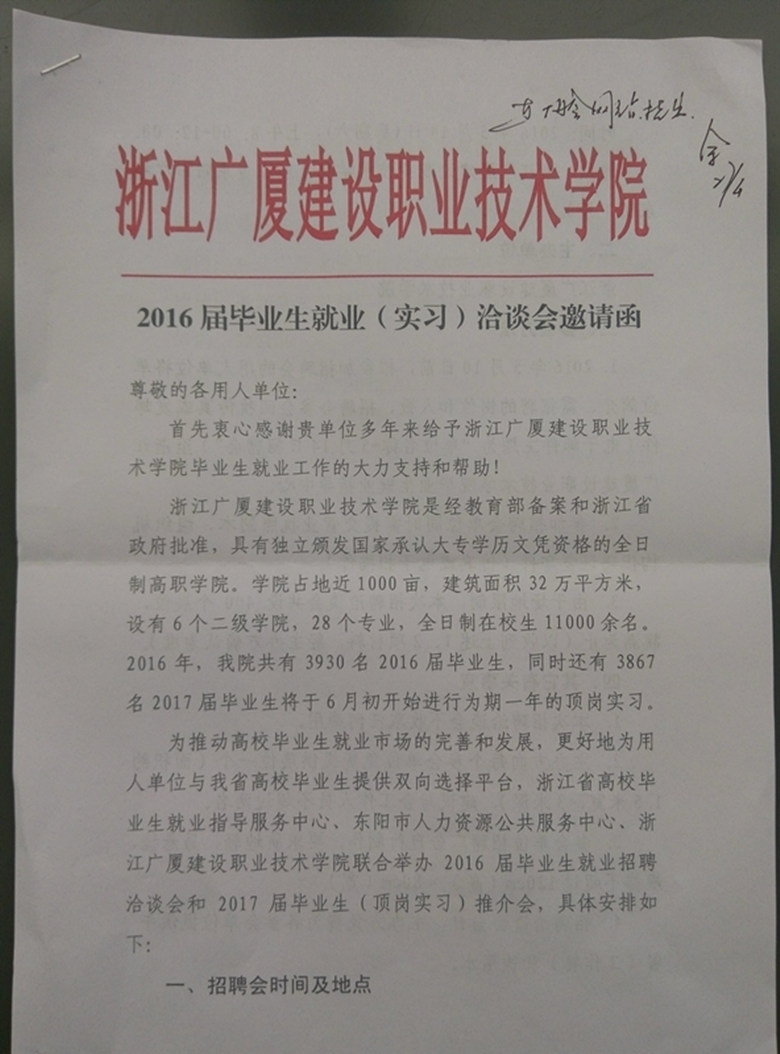 浙江广厦建设职业技术学院
2016 届毕业生就业（实习）洽谈会邀请函
尊敬的各用人单位：
首先衷心感谢贵单位多年来给予浙江广厦建设职业技
术学院毕业生就业工作的大力支持和帮助！
浙江广厦建设职业技术学院是经教育部备案和浙江省
政府批准，具有独立颁发国家承认大专学历文凭资格的全日
制高职学院。学院占地近 1000 亩，建筑面积 32 万平方米，
设有 6 个二级学院，28 个专业，全日制在校生 11000 余名。
2016 年，我院共有 3930 名 2016 届毕业生，同时还有 3867
名 2017 届毕业生将于 6 月初开始进行为期一年的顶岗实习。
为推动高校毕业生就业市场的完善和发展，更好地为用
人单位与我省高校毕业生提供双向选择平台，浙江省高校毕
业生就业指导服务中心、东阳市人力资源公共服务中心、浙
江广厦建设职业技术学院联合举办 2016 届毕业生就业招聘
洽谈会和 2017 届毕业生（顶岗实习）推介会，具体安排如
下：
一、招聘会时间及地点